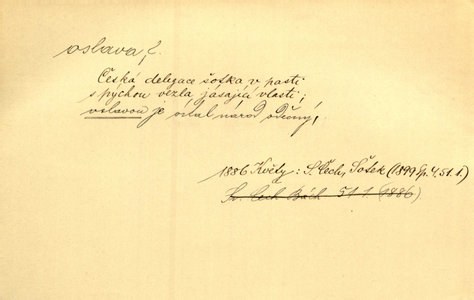 oslava, f.
Česká delegace šotka v pasti
s pýchou vezla jásající vlasti;
oslavou je vítal národ vděčný,
1886 Květy: S. Čech, Šotek (1899 Sp. 4.51.1.)
Sv. Čech Bách 51.1. (1886)